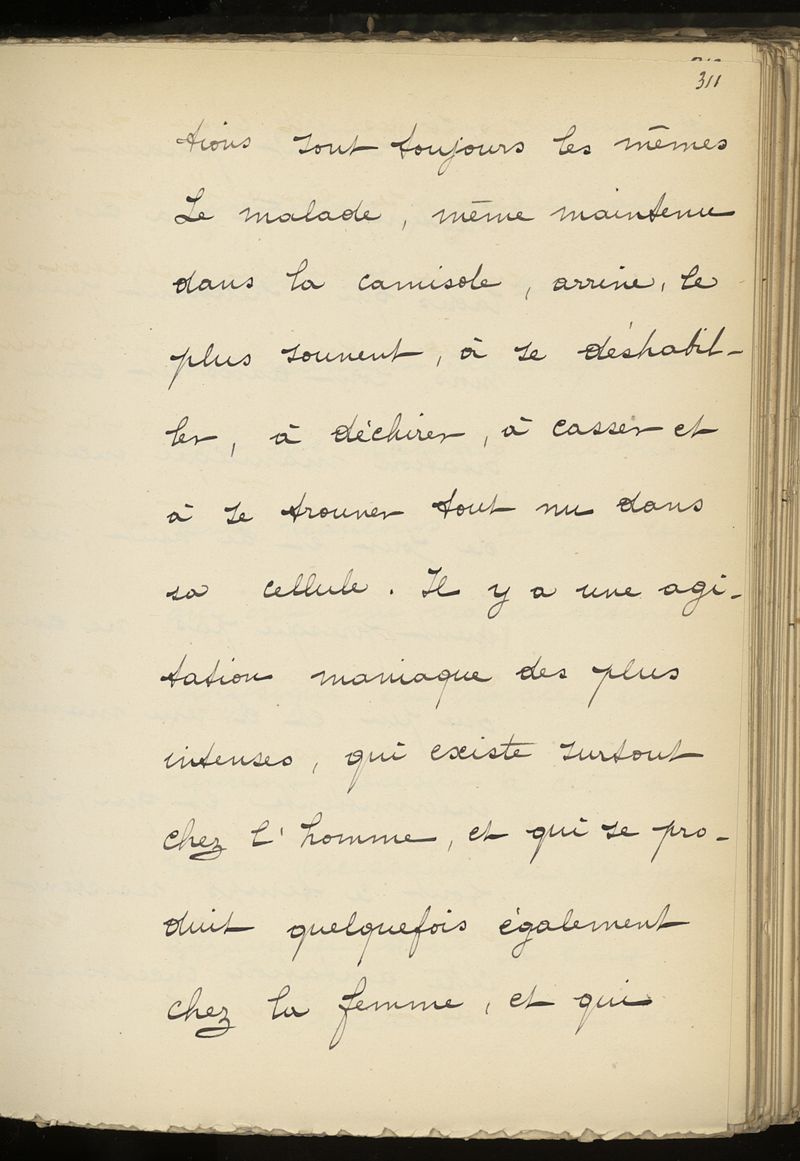 311
tions sont toujours les mêmes
Le malade, même maintenu
dans la camisole, arrive, le
plus souvent, à se déshabil-
ler, à déchirer, à casser et
à se trouver tout nu dans
sa cellule. Il y a une agi-
tation maniaque des plus
intenses, qui existe surtout
chez l'homme, et qui se pro-
duit quelquefois également
chez la femme, et qui